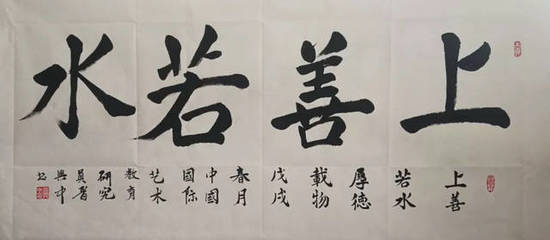 上善若水
上善
若水
厚德
載物
戊戌
春月
中國
國際
艺术
教育
研究
員晋
興中
书